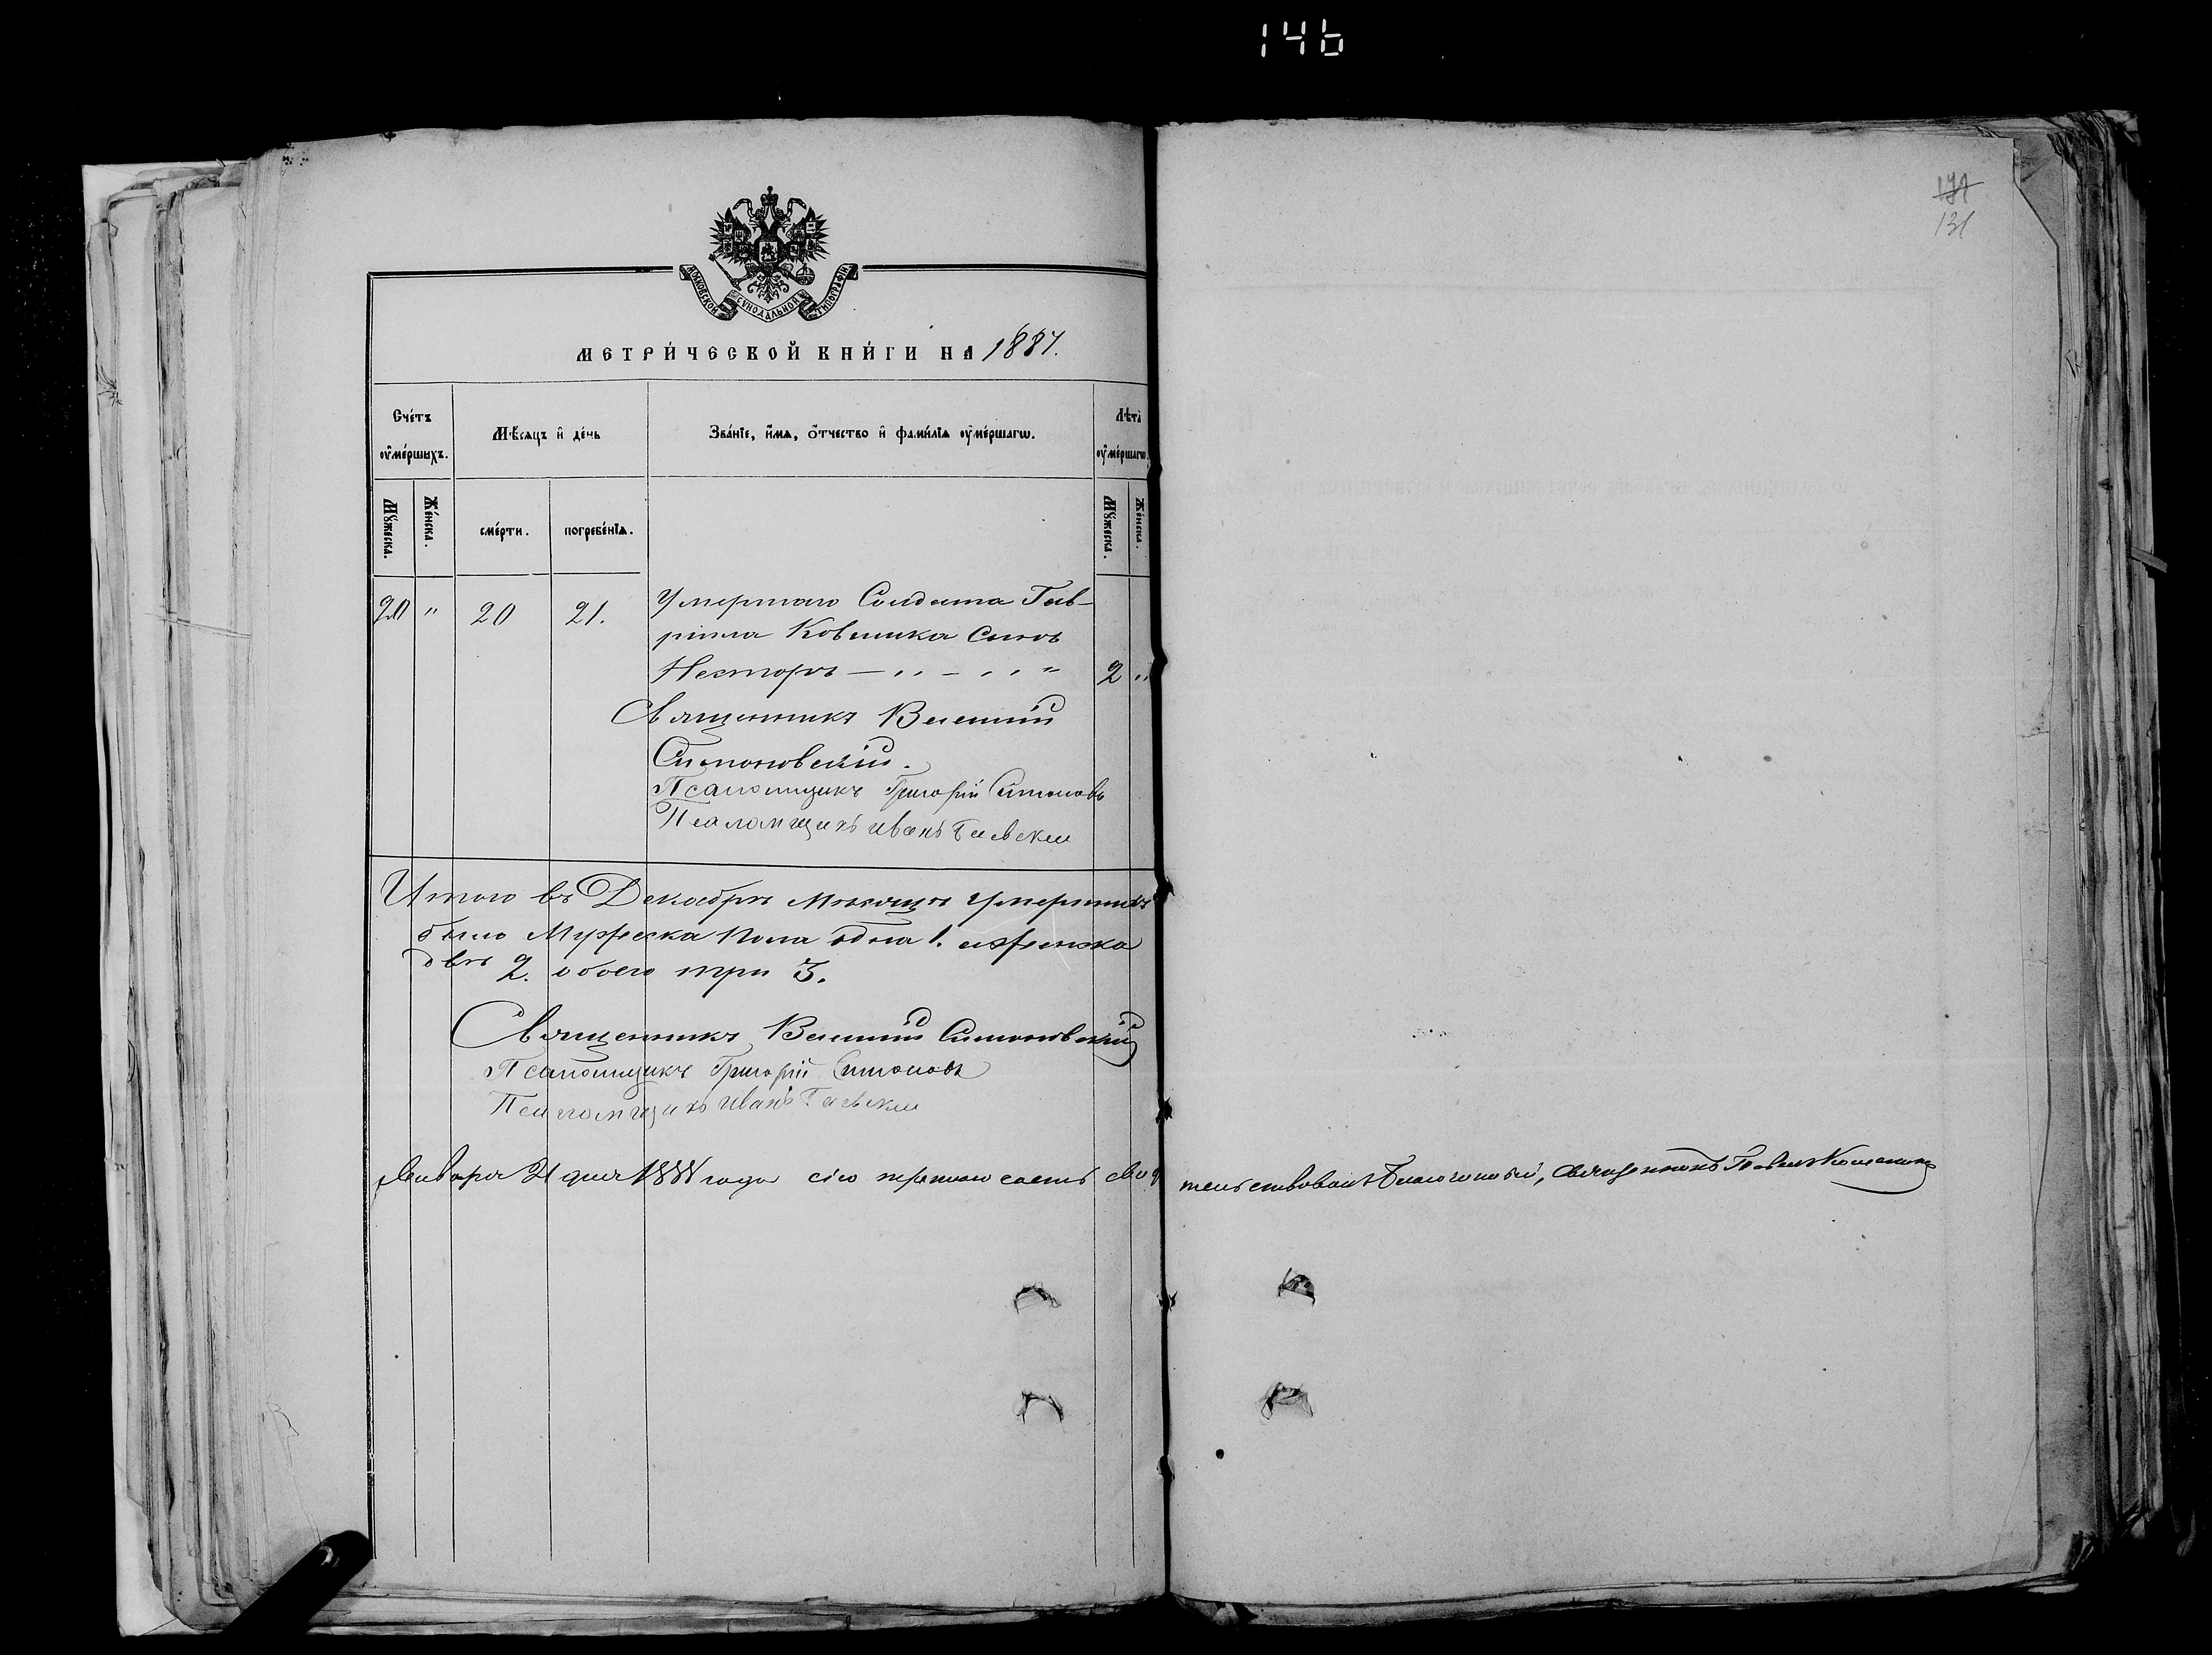 146
131
МОСКОВСКОЙ СѴНОДАЛЬНОЙ ТИПОГРАФІИ
МЕТРИ́ЧЕСКОЙ КНИ́ГИ НА 1887.
Сче́тъ ᲂу҆ме́ршыхъ.
Мѣ́сяцъ и҆ де́нь
Зва́нїе, и҆́мѧ, ѻ҆́тчество и҆ фамі́лїѧ ᲂу҆ме́ршагѡ.
Лѣта̀ ᲂу҆ме́ршагѡ
Мꙋ́жеска.
Же́нска.
сме́рти.
погребе́нїѧ.
Мꙋ́жеска.
Же́нска.
20 " 20 21. Умершаго Солдата Гав-
ріила Ковшика Сынъ
Несторъ — " — " " 2 "
Священникъ Василій
Симоновскій.
Псаломщикъ Григорій Симоновъ
Псаломщикъ Иванъ
Итого въ Декабрѣ Мѣсяцѣ Умершихъ
было Мужеска Пола одна 1. а женска
двѣ 2. обоего три 3.
Священникъ Василій Симоновскій
Псаломщикъ Григорій Симоновъ
Псаломщикъ Иванъ
Января 21 дня 1888 года сію третью часть свидѣтельствовалъ Благочинный, Священникъ Павелъ